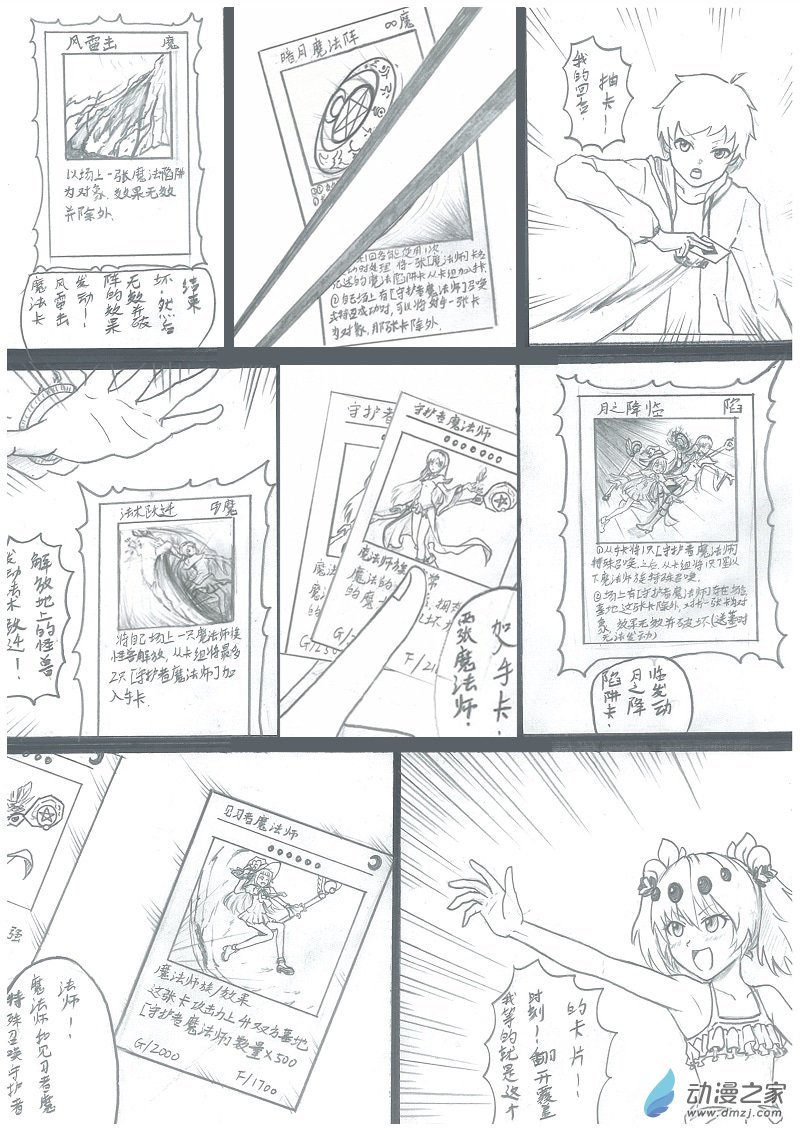 我的回合！
抽卡！
暗月魔法阵 ∞魔
②自己场上有[守护者魔法师]召唤
风雷击 魔
以场上一张魔法陷阱
为对象，效果无效
并除外.
魔法卡
风雷击
发动！
阵的效果
无效并破
坏，然后
结束
月之降临 陷
①从手卡将1只[守护者魔法师]
特殊召唤，之后，从卡组将1只
下魔法师族特殊召唤.
②场上有[守护者魔法师]存在
墓地这张卡除外，对方一张卡为对
象，效果无效并破坏.(送墓时
无法发动)
陷阱卡！
月之降
临发动
守护者魔法师
守护者魔法师
魔法师族
F/
G/2
两张魔法师.
加入手卡，
法术跃迁 魔
将自己场上一只魔法师族
怪兽解放，从卡组将最多
2只[守护者魔法师]加
入手卡.
解放地上的怪兽
发动法术跃迁！！
我等的就是这个
时刻！翻开覆盖
的卡片！
见习者魔法师
魔法师族/效果
这张卡攻击力上升双方墓地
[守护者魔法师]数量×500
G/2000 F/1700
强
特殊召唤守护者
魔法师和见习者魔
法师！！
动漫之家
www.dmzj.com